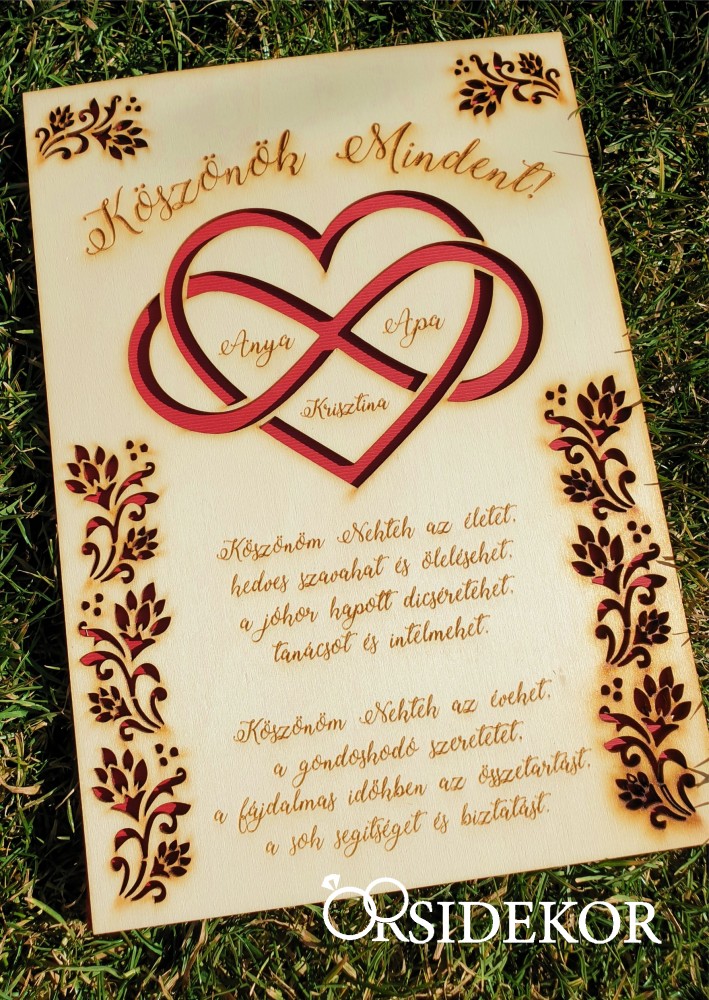 Köszönök Mindent!
Anya
Apa
Krisztina
Köszönöm Nektek az életet,
kedves szavakat és öleléseket,
a jókor kapott dicséreteket,
tanácsot és intelmeket.
Köszönöm Nektek az éveket,
a gondoskodó szeretetet,
a fájdalmas időkben az összetartást,
a sok segítséget és biztatást.
ORSIDEKOR